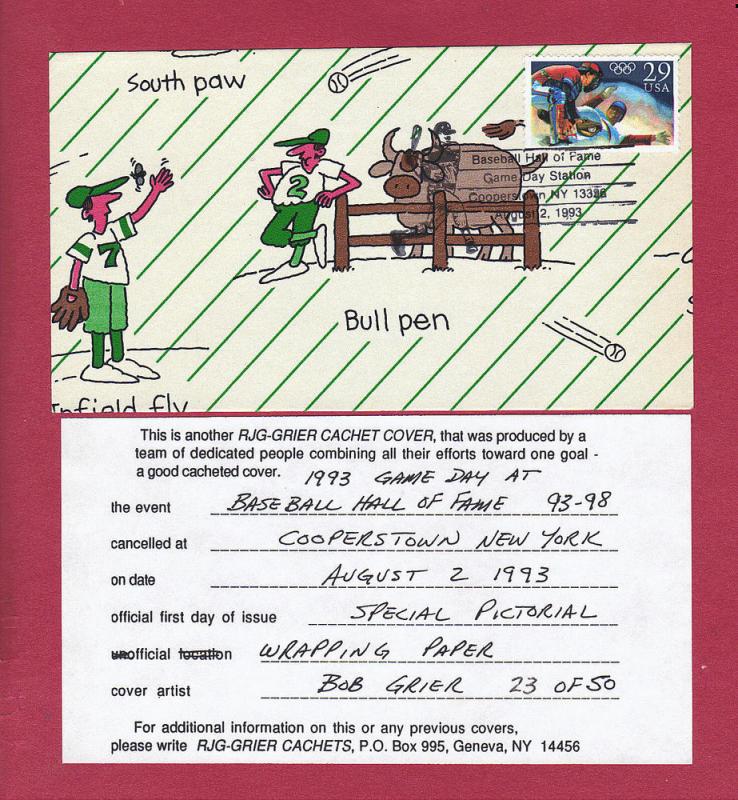 South paw
29
USA
Baseball Hall of Fame
Game Day Station
Cooperstown NY 13326
August 2, 1993
2
7
Bull pen
Infield fly
This is another RJG-GRIER CACHET COVER, that was produced by a
team of dedicated people combining all their efforts toward one goal -
a good cacheted cover. 1993 GAME DAY AT
the event BASEBALL HALL OF FAME 93-98
cancelled at COOPERSTOWN NEW YORK
on date AUGUST 2 1993
official first day of issue SPECIAL PICTORIAL
unofficial location WRAPPING PAPER
cover artist BOB GRIER 23 OF 50
For additional information on this or any previous covers,
please write RJG-GRIER CACHETS, P.O. Box 995, Geneva, NY 14456